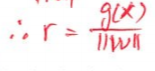 ∴ r = g(x) / ||w||